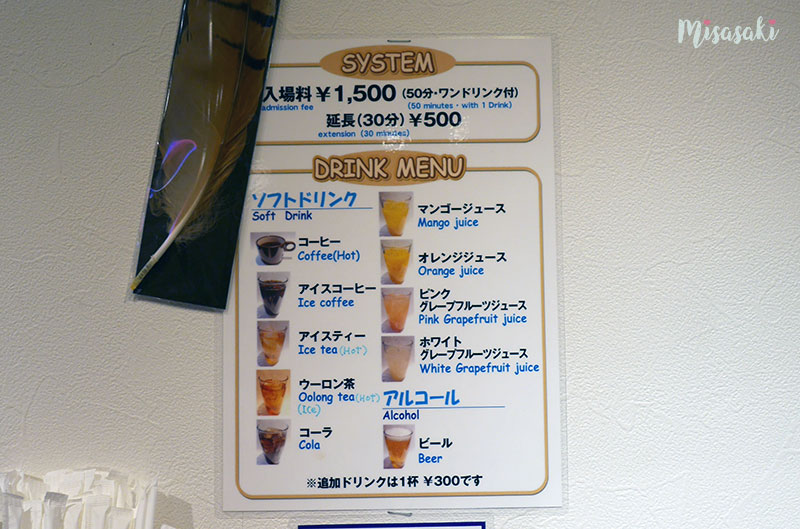 Misasaki
SYSTEM
入場料 ¥1,500 (50分・ワンドリンク付)
admission fee (50 minutes・with 1 Drink)
延長(30分) ¥500
extension (30 minutes)
DRINK MENU
ソフトドリンク
Soft Drink
コーヒー
Coffee(Hot)
アイスコーヒー
Ice coffee
アイスティー
Ice tea(HOT)
ウーロン茶
Oolong tea(HOT)
(ICE)
コーラ
Cola
マンゴージュース
Mango juice
オレンジジュース
Orange juice
ピンク
グレープフルーツジュース
Pink Grapefruit juice
ホワイト
グレープフルーツジュース
White Grapefruit juice
アルコール
Alcohol
ビール
Beer
※追加ドリンクは1杯 ¥300です